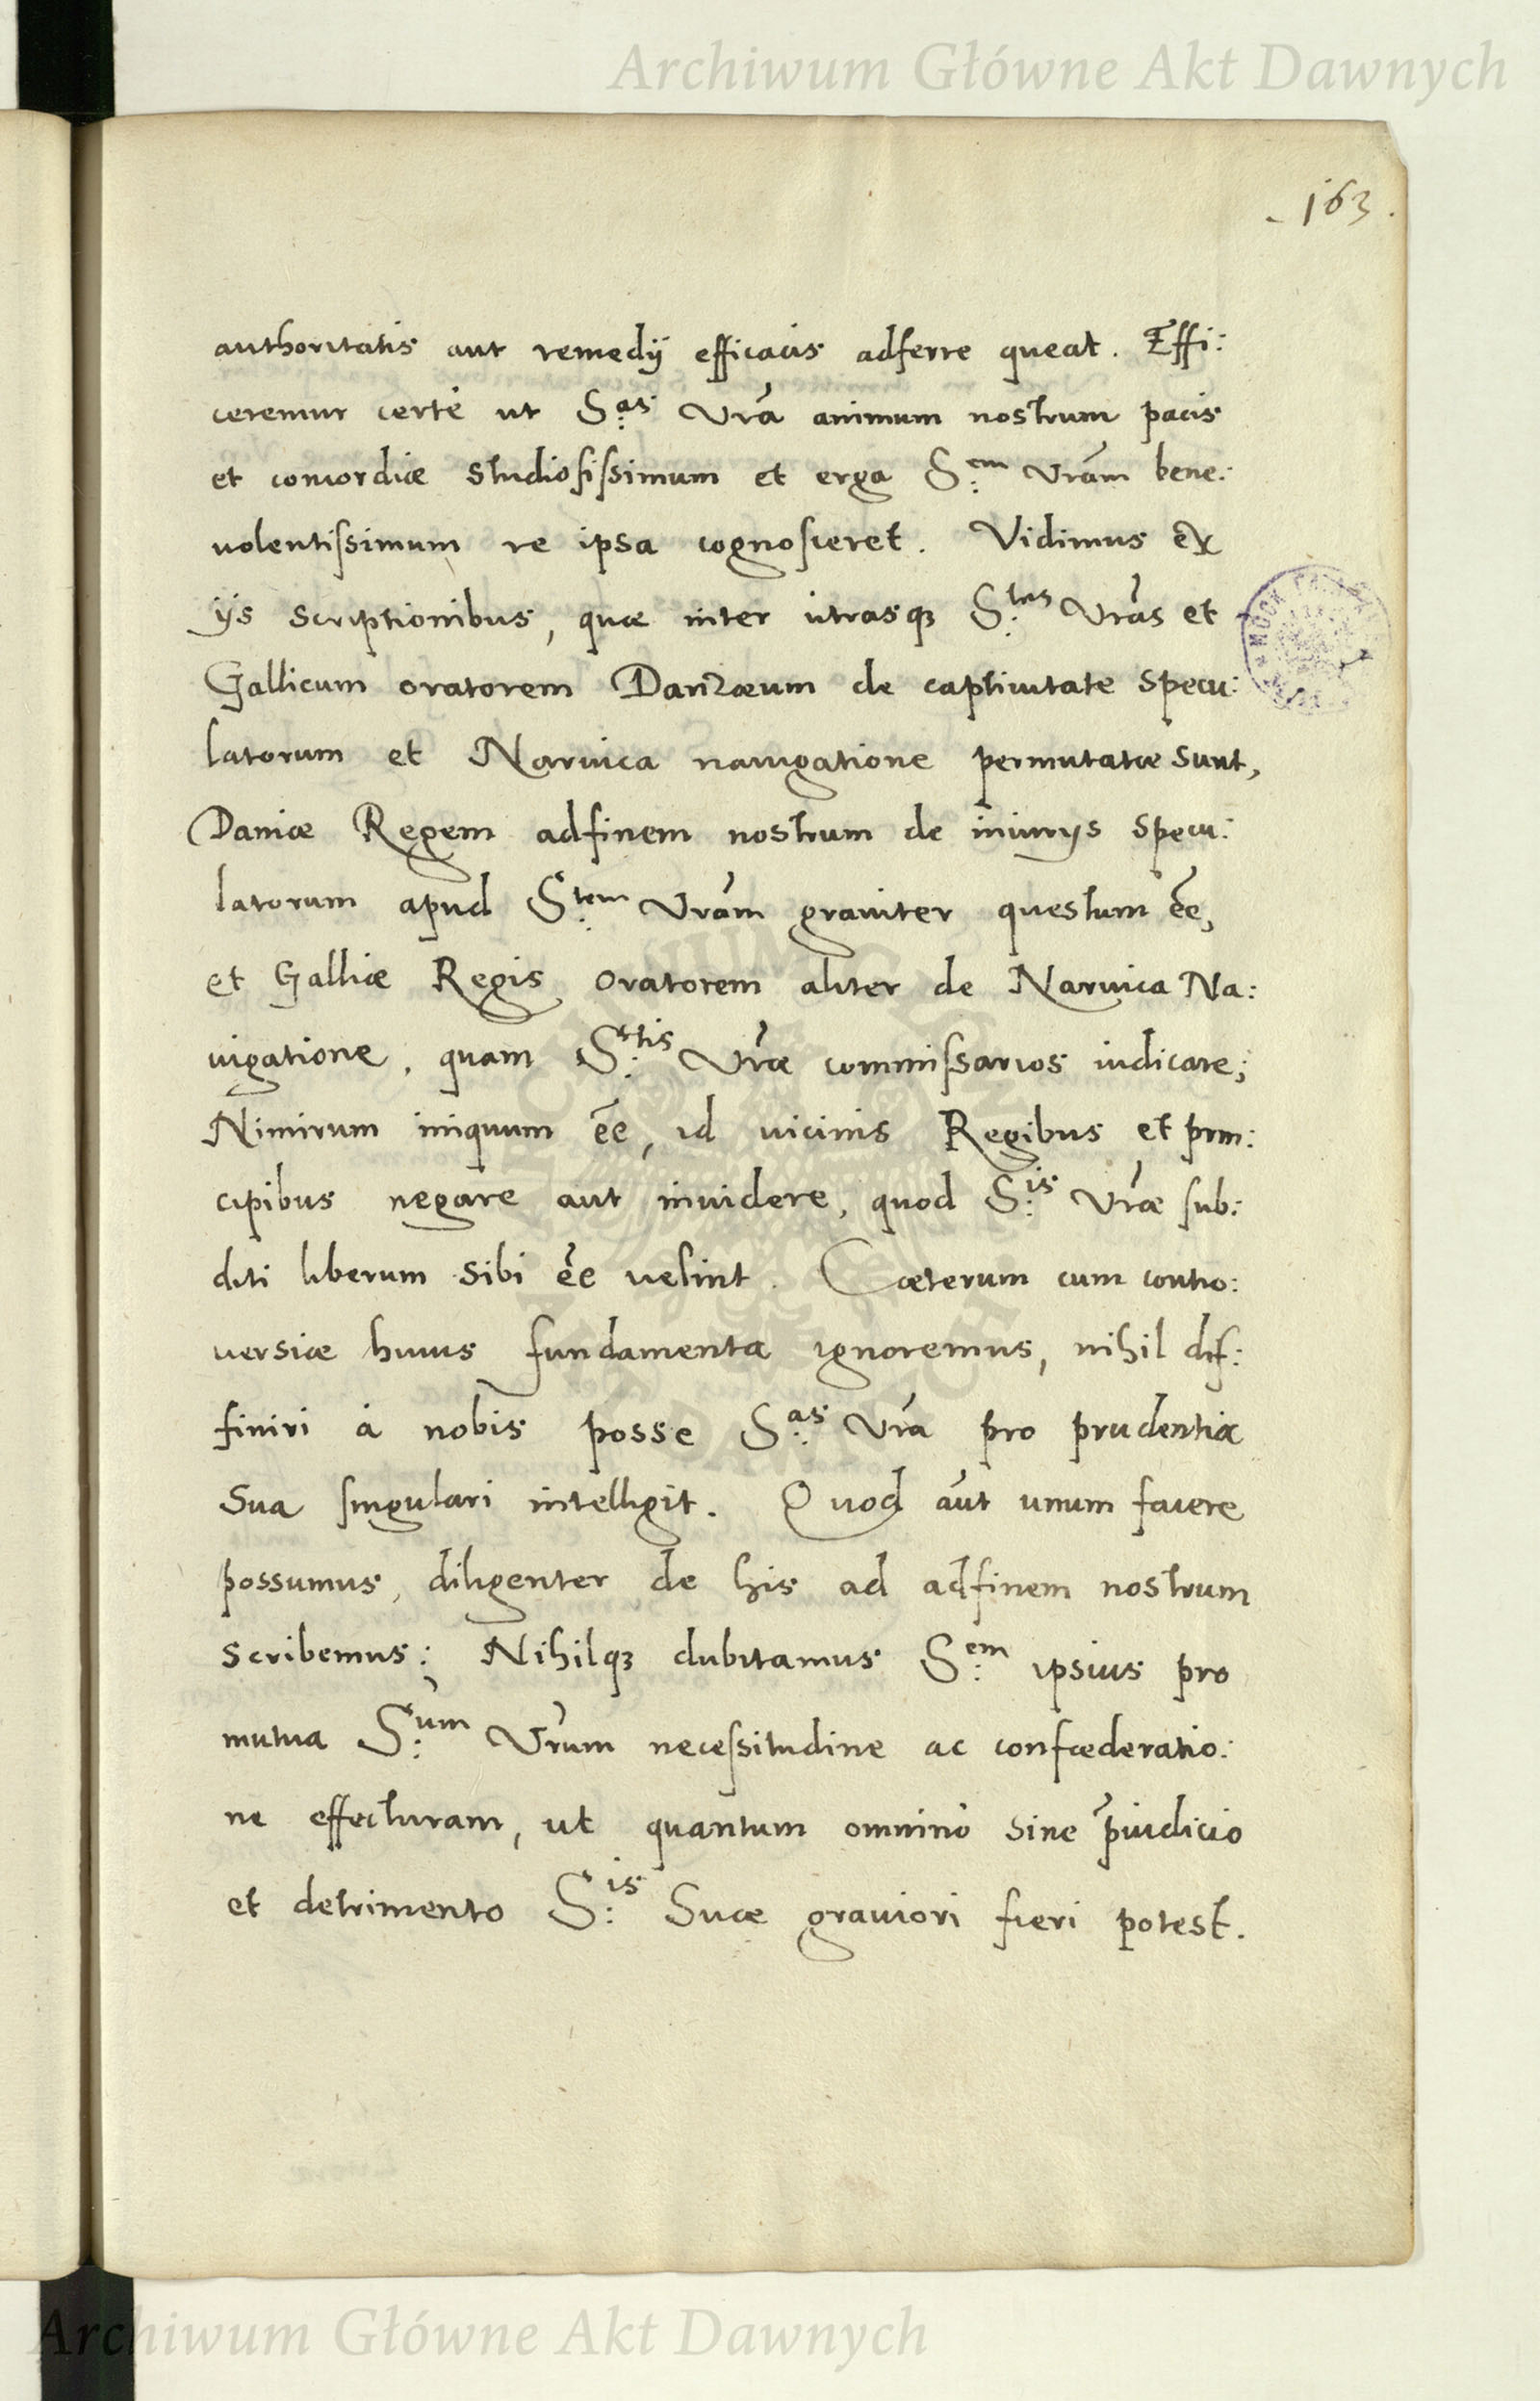 Archiwum Główne Akt Dawnych
163.
authoritatis aut remedij efficacis adferre queat. Effi:
ceremur certè ut S:as Vrã animum nostrum pacis
et concordiæ studiosissimum et erga S:em Vrãm bene:
uolentissimum re ipsa cognosceret. Vidimus ex
ijs scriptionibus, quæ inter utrasq3 S:tas Vrãs et
Gallicum oratorem Danzæum de captiuitate specu:
latorum et Naruica nauigatione permutatæ sunt,
Daniæ Regem adfinem nostrum de iniurijs specu:
latorum apud S:tem Vrãm grauiter questum ẽe,
et Galliæ Regis oratorem aliter de Naruica Na:
uigatione, quam S:tis Vrãe commissarios iudicare;
Nimirum iniquum ẽe, id uicinis Regibus et prin:
cipibus negare aut inuidere, quod S:is Vrãe sub:
diti liberum sibi ẽe uelint. Cæterum cum contro:
uersiæ huius fundamenta ignoremus, nihil dif:
finiri à nobis posse S:as Vrã pro prudentia
sua singulari intelligit. Quod aũt unum facere
possumus, diligenter de his ad adfinem nostrum
scribemus: Nihilq3 dubitamus S:em ipsius pro
mutua S:um Vrũm necessitudine ac confœderatio:
ne effecturam, ut quantum omninò sine p̃iudicio
et detrimento S:is Suæ grauiori fieri potest.
Archiwum Główne Akt Dawnych